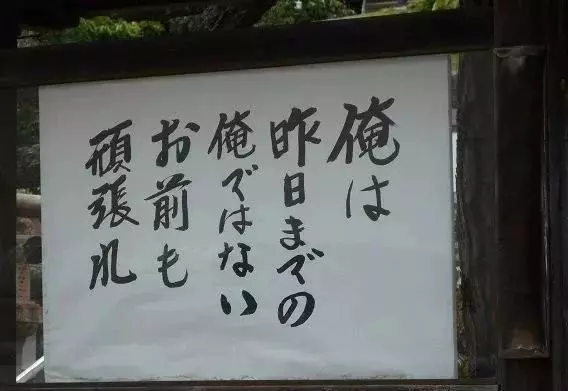 俺は
昨日までの
俺ではない
お前も
頑張れ